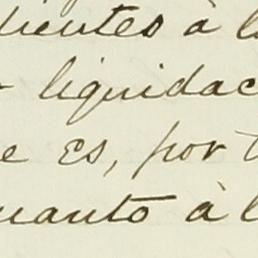 dientes à l
liquidac
e es, por t
uanto à l